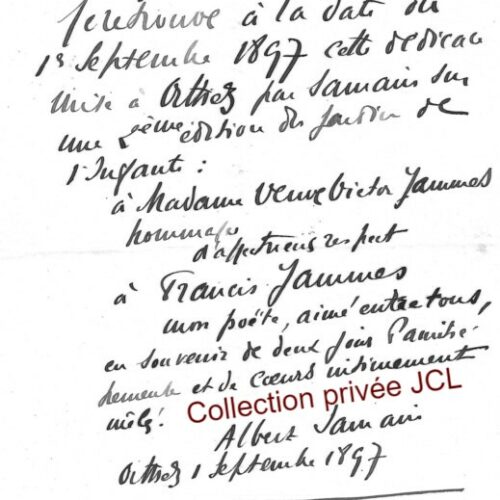 Je retrouve à la date du
1r Septembre 1897 cette dédicace
mise à Orthez par Samain sur
une 2ème édition du Jardin de
l'Infante :
à Madame Veuve Victor Jammes
hommage
d'affectueux respect
à Francis Jammes
mon poëte, aimé entre tous,
en souvenir de deux
et de cœurs intimement
mêlés!
Collection privée JCL
Albert Samain
Orthez 1 Septembre 1897